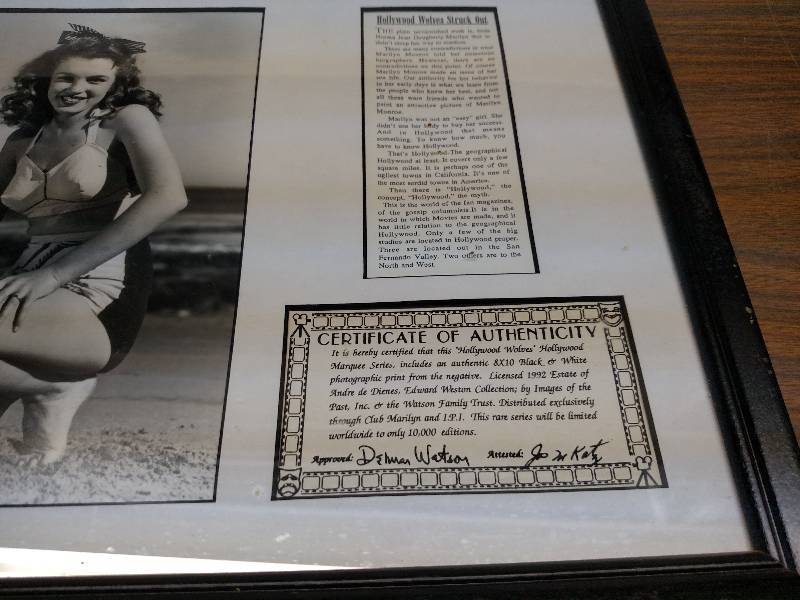 Hollywood Wolves Struck Out
THE plain unvarnished truth is, from
Norma Jean Dougherty-Marilyn that she
didn't sleep her way to stardom.
There are many contradictions in what
Marilyn Monroe told her numerous
biographers. However, there are no
contradictions on this point. Of course
Marilyn Monroe made no
sex life. Our authority for her behavior
in her early days is what we learn from
the people who knew her best, and not
all these were friends who wanted to
paint an attractive picture of Marilyn
Monroe.
Marilyn was not an "easy" girl. She
didn't use her body to buy her success.
And in Hollywood that means
something. To know how much, you
have to know Hollywood.
That's Hollywood. The geographical
Hollywood at least. It covers only a few
square miles. It is perhaps one of the
ugliest towns in California. It's one of
the most sordid towns in America.
Then there is "Hollywood," the
concept, "Hollywood," the myth.
This is the world of the fan magazines,
of the gossip columnists.It is in the
world in which Movies are made, and it
has little relation to the geographical
Hollywood. Only a few of the big
studios are located in Hollywood proper.
Three are located out in the San
Fernando Valley. Two others are to the
North and West.
CERTIFICATE OF AUTHENTICITY
It is hereby certified that this "Hollywood Wolves" Hollywood
Marquee Series, includes an authentic 8X10 Black & White
photographic print from the negative. Licensed 1992 Estate of
Andre de Dienes, Edward Weston Collection; by Images of the
Past, Inc. & the Watson Family Trust. Distributed exclusively
through Club Marilyn and I.P.I. This rare series will be limited
worldwide to only 10,000 editions.
Approved: Delmar Watson Attested: Jo M Katz